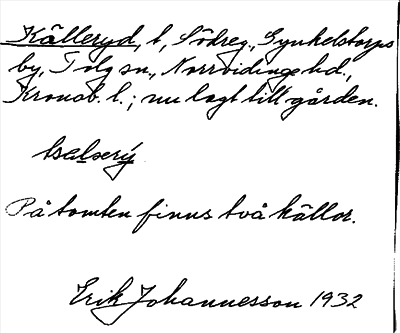 Källeryd, t, Södreg., Gynkelstorps
by, Tolg sn., Norrvidinge hd.,
Kronob. l.; nu lagt till gården.
På tomten finns två källor.
Erik Johannesson 1932